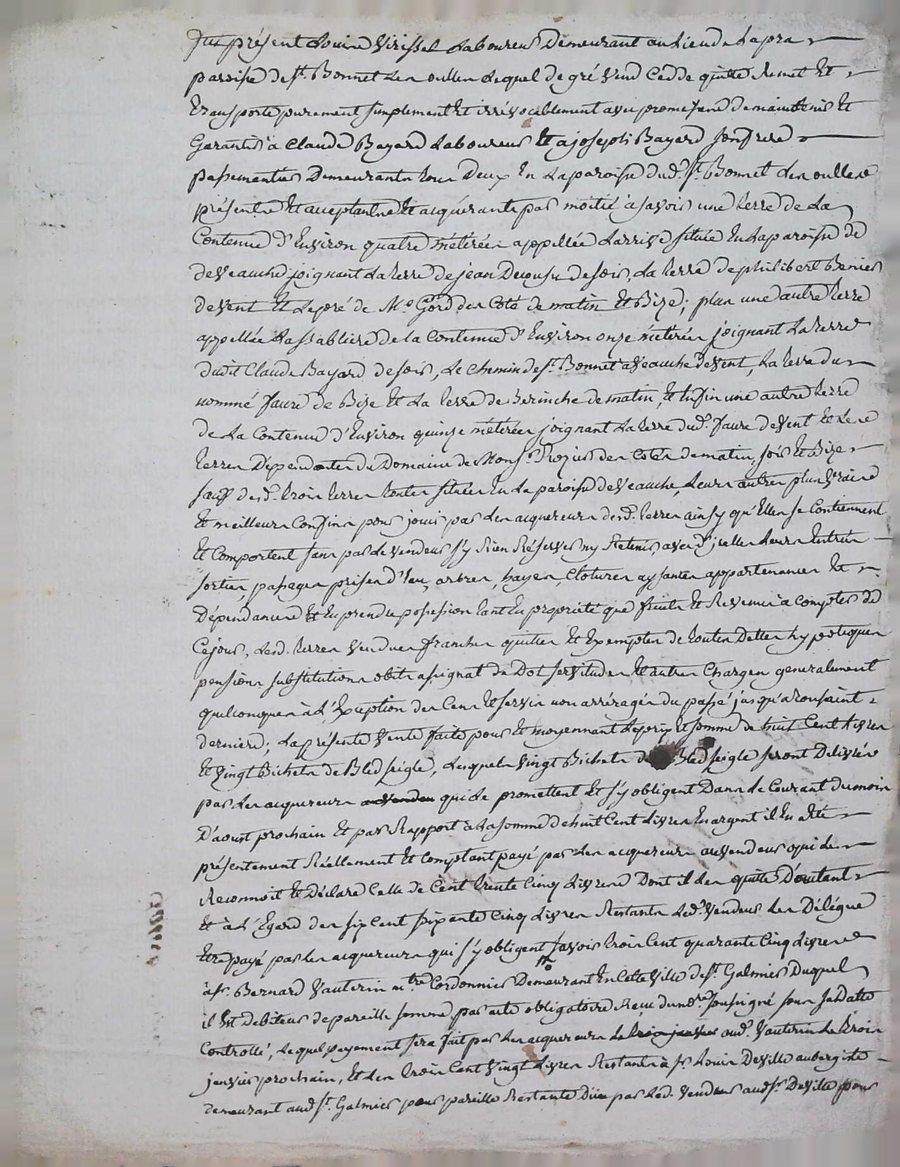 fut présent Louis Virissel Laboureur Demeurant au Lieu de Lapra
paroisse de st. Bonnet Les oulles Lequel de gré vend Cedde quitte Remet Et
transporte purement simplement Et irrévocablement avec promesse de maintenir Et
Garantir à Claude Bayard Laboureur Et a joseph Bayard son frere
passementier Demeurants tous Deux En La paroisse dud. st. Bonnet Les oulles
présents Et acceptants Et acquerants par moitié, a savoir une terre de La
Contenue d'Environ quatre méterées appellée Larrive située En La paroisse de
de veauche joignant La terre de jean de soir, La terre de philibert Bernier
de vent Et Le pré de Mr. Gord des Cotés de matin Et Bize; plus une autre terre
appellée La ssabliere de la Contenue d'Environ onze méterées joignant La terre
dudit Claude Bayard de soir, Le chemin de st. Bonnet à veauche de vent, La terre du
nommé faure de Bize Et La terre de Berinche de matin, Et Enfin une autre terre
de La Contenue d'Environ quinze méterées joignant La terre dud. faure de vent Et Les
terres Dependantes du Domaine de Monsr. des Cotés de matin, soir Et Bize
sauf desd. trois terres toutes situées En La paroisse de veauche, Leurs autres plus vrais
Et meilleurs Confins pour jouir par Les acquereurs desd. terres ainsy qu'Elles se Contiennent
Et Comportent sans par Le vendeur s'y Rien Réserver ny Retenir avec d'jcelles Leurs Entrées
sorties, passages prises d'Eau, arbres, hayes, Clotures aysances appartenances Et
Dépendances Et En prendre possession tant En propriété que fruits Et Revenus à Compter de
Cejour, Lesd. terres vendues franches quittes Et Exemptes de toutes Dettes hypoteques
pensions substitutions obits assignat de Dot servitudes Et autres Charges generalement
quelconques à L'Exception des Cens Et servis non arréragés du passé jusqu'a toussaint
derniere; La présente vente faite pour Et moyennant Le prix Et somme de huit Cent Livres
Et vingt Bichets de Bled seigle, Lesquels vingt Bichets de Bled seigle seront Delivrés
par Les acquereurs au vendeur qui Le promettent Et s'y obligent Dans Le Courant du mois
D'aoust prochain Et par Rapport à La somme de huit Cent Livres En argent il En a Eté
présentement Réellement Et Comptant payé par Les acquereurs au vendeur qui Le
Reconnoit Et Déclare Celle de Cent trente Cinq Livres Dont il Les quitte D'autant
Et à L'Egard des six Cent soixante Cinq Livres Restants Led. vendeur Les Délégue
Etre payé par Les acquereurs qui s'y obligent savoir trois Cent quarante Cinq Livres
à sr. Bernard Vauterin mtre Cordonnier Demeurant En Cette ville de st. Galmier Duquel
il Est Debiteur de pareille somme par acte obligatoire Recu du nre. soussigné sous sa datte
Controllé, Lequel payement sera fait par Les acquereurs aud. Vauterin Le trois
janvier prochain, Et Les trois Cent vingt Livres Restants à sr. Louis Deville aubergiste
demeurant aud. st. Galmier pour pareille Restante Düe par Led. vendeur aud. sr. Deville pour